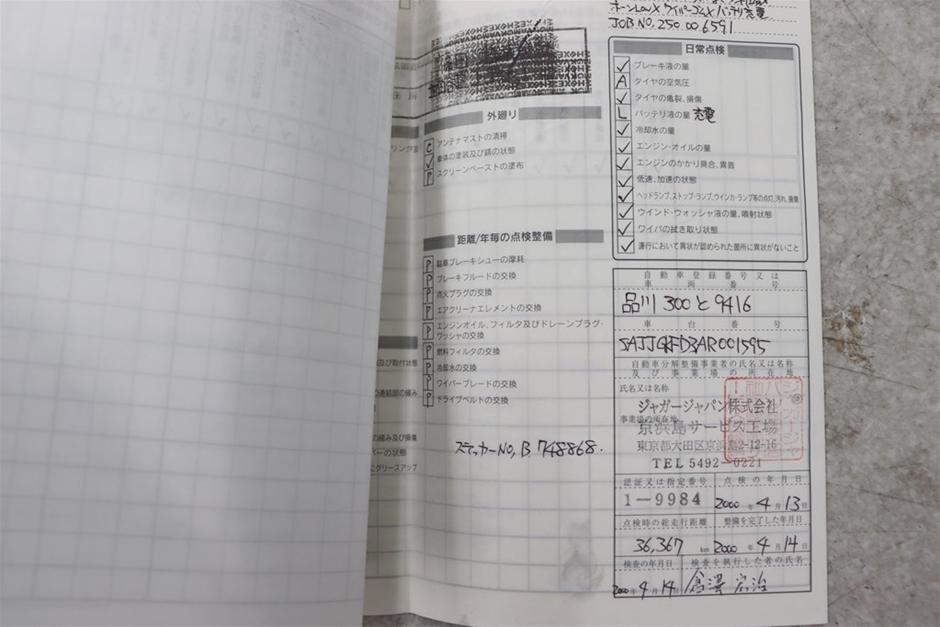 ホーンLow× ワイパーゴム× バッテリ充電
JOB NO. 250.00.6591
外廻り
C アンテナマストの清掃
✓ 車体の塗装及び錆の状態
P スクリーンペーストの塗布
距離/年毎の点検整備
P 駐車ブレーキシューの摩耗
P ブレーキフルードの交換
P 点火プラグの交換
P エアクリーナエレメントの交換
P エンジンオイル、フィルタ及びドレーンプラグ・
ワッシャの交換
P 燃料フィルタの交換
P 冷却水の交換
P ワイパーブレードの交換
P ドライブベルトの交換
ステッカーNO, B 748868.
日常点検
✓ ブレーキ液の量
A タイヤの空気圧
✓ タイヤの亀裂、損傷
L バッテリ液の量 充電
✓ 冷却水の量
✓ エンジン・オイルの量
✓ エンジンのかかり具合、異音
✓ 低速、加速の状態
✓ ヘッドランプ、ストップ・ランプ、ウインカ・ランプ等の点灯、汚れ、損傷
✓ ウインド・ウォッシャ液の量、噴射状態
✓ ワイパの拭き取り状態
✓ 運行において異状が認められた箇所に異状がないこと
自動車登録番号又は
車両番号
品川 300 と 9416
車台番号
SAJJGKFD3AR001595
自動車分解整備事業者の氏名又は名称
及び事業場の所在地
氏名又は名称
ジャガージャパン株式会社
事業場の所在地
京浜島サービス工場
東京都大田区京浜島2-12-16
TEL 5492-0221
認証又は指定番号 点検の年月日
1-9984 2000年4月13日
点検時の総走行距離 整備を完了した年月日
36,367 km 2000年4月14日
検査の年月日 検査を執行した者の氏名
2000年4月14日
及び取付状態
の緩み及び損傷
ーの状態
にグリースアップ